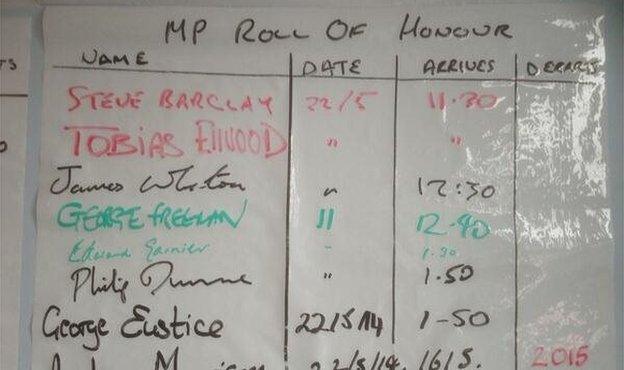 MP ROLL OF HONOUR
NAME DATE ARRIVES DEPARTS
STEVE BARCLAY 22/5 11.30
TOBIAS Ellwood " "
James Wharton " 12:30
GEORGE FREEMAN 11 12.40
Edward Garnier " 1.30
Philip Dunne " 1.50
George Eustice 22/5/14 1-50
22/5/14. 2015